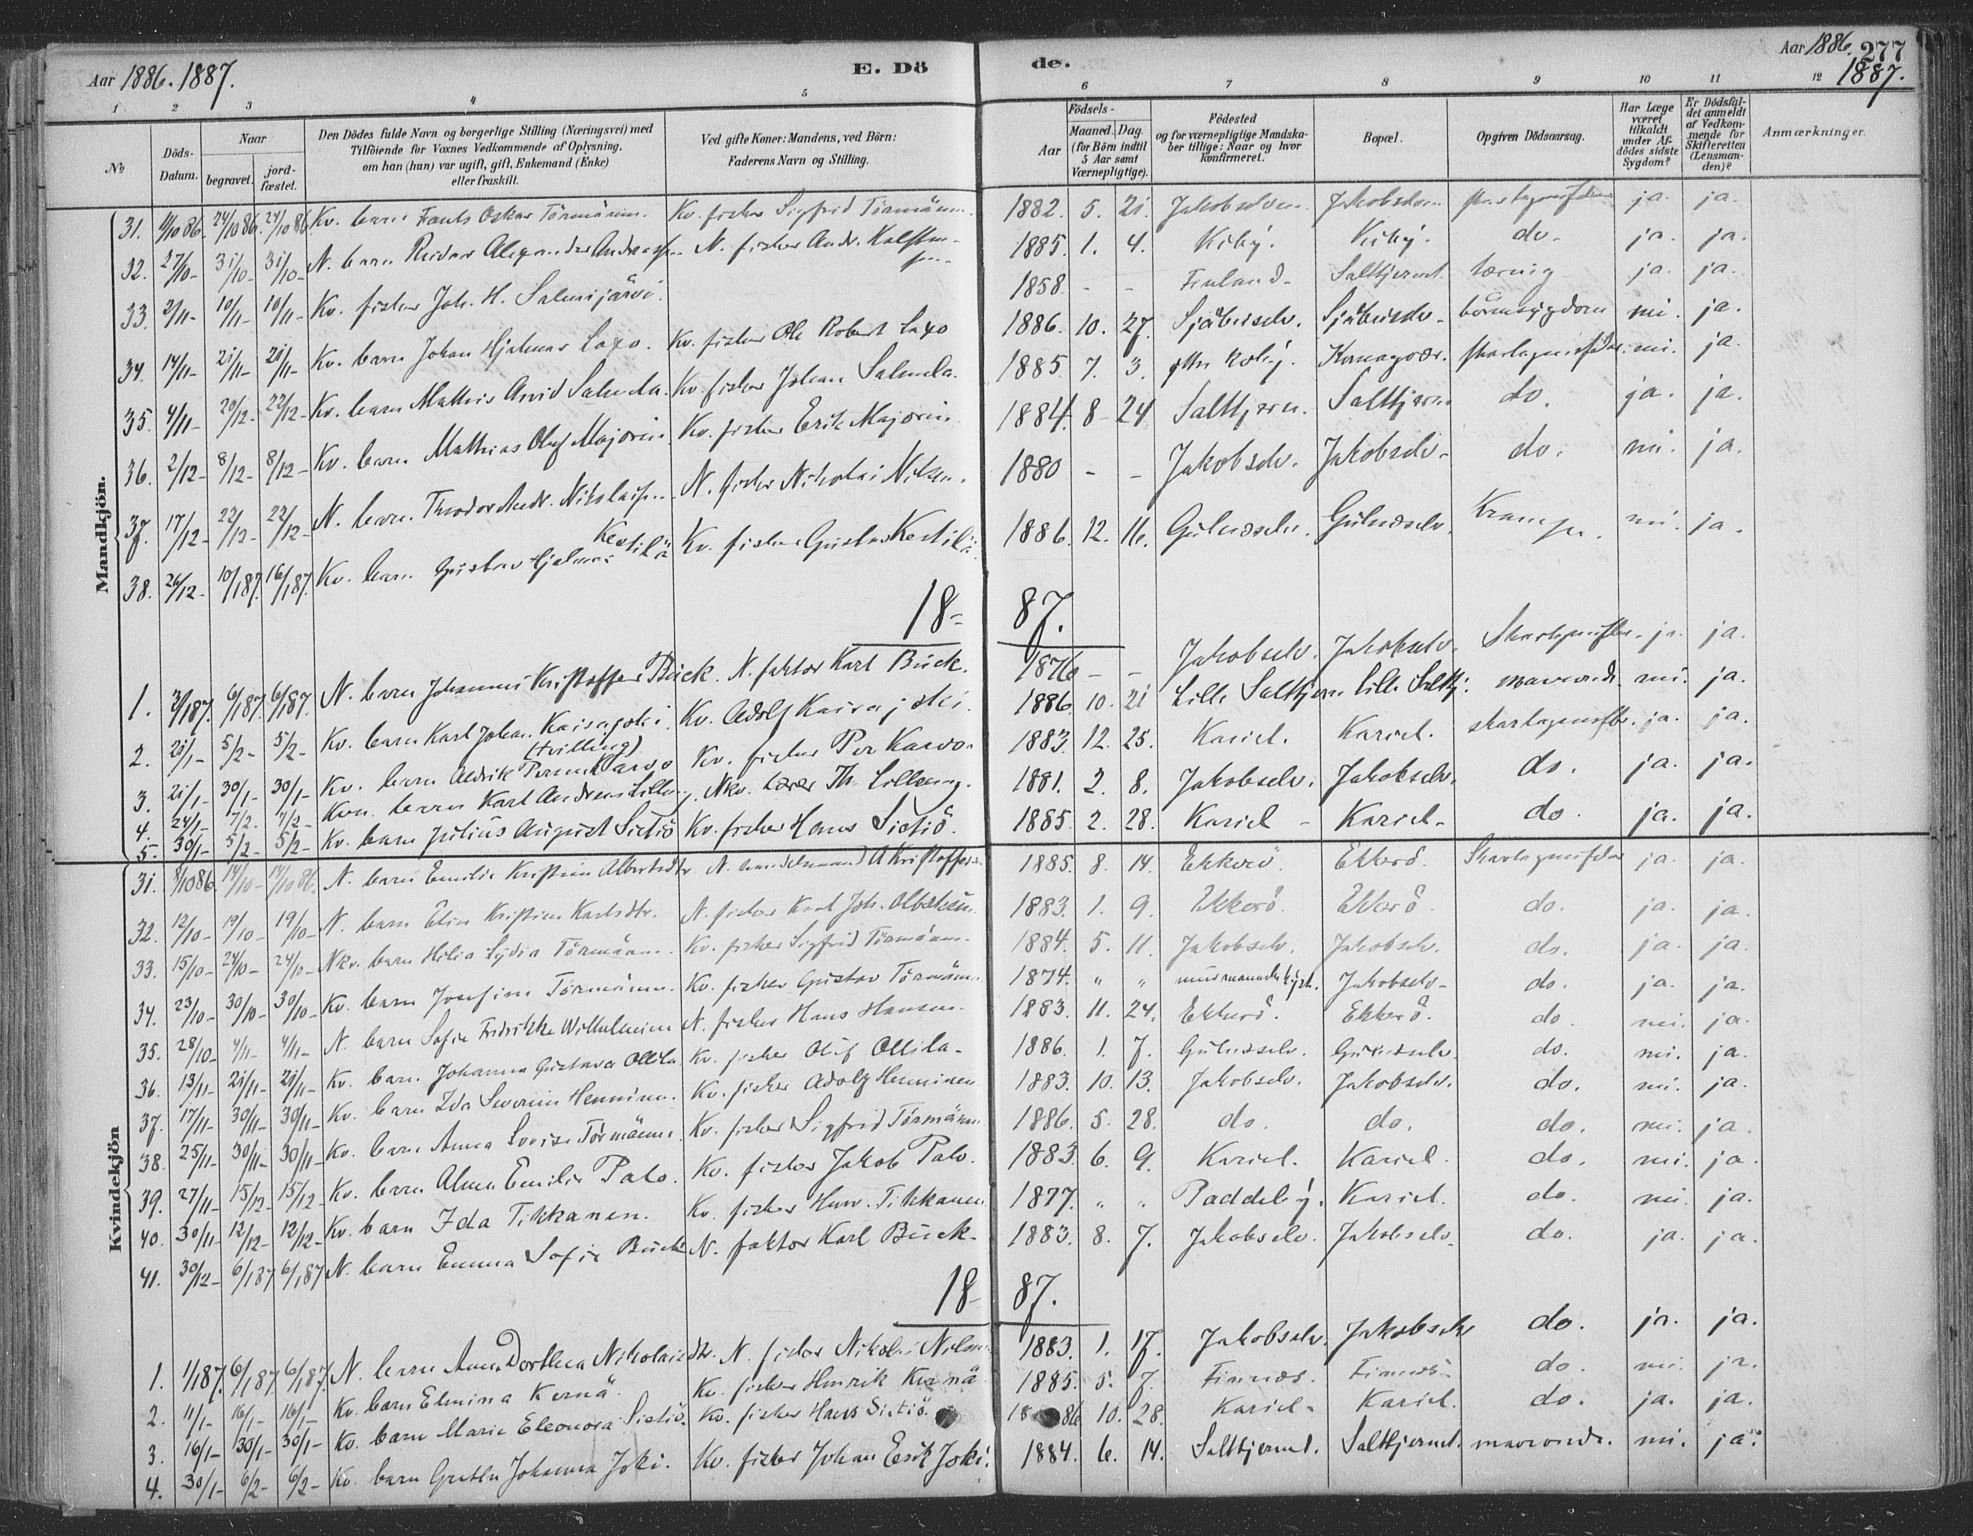 Aar 1886. 1887.
E. Dö
de.
Aar 1886. 277
1887.
1 2 3 4 5 6 7 8 9 10 11 12
No
Döds-Datum.
Naar
begravet.
jord-fæstet.
Den Dödes fulde Navn og borgerlige Stilling (Næringsvei) med
Tilföiende for Voxnes Vedkommende af Oplysning,
om han (hun) var ugift, gift, Enkemand (Enke)
eller fraskilt.
Ved gifte Koner: Mandens, ved Börn:
Faderens Navn og Stilling.
Födsels-
Aar
Maaned. Dag.
(for Börn indtil
5 Aar samt
Værnepligtige).
Födested
og for værnepligtige Mandska-
ber tillige: Naar og hvor
konfirmeret.
Bopæl.
Opgiven Dödsaarsag.
Har Læge
været
tilkaldt
under Af-
dödes sidste
Sygdom?
Er Dödsfal-
det anmeldt
af Vedkom-
mende for
Skifteretten
(Lensman-
den)?
Anmærkninger.
Mandkjön.
31. 24/10 86. 24/10 86 Kv. barn Frants Oskar Törmänen. Kv. fisker Sigfrid Törmänen. 1882. 5. 21. Jakobselven. Jakobselven skarlagensfeber ja. ja.
32. 27/10- 31/10- 31/10- N. barn Reidar Alexander Andreassen N. fisker Andr. 1885. 1. 4. Kiby. Kiby. do. ja. ja.
33. 2/11- 10/11- 10/11- Kv. fisker Joh. H. Salmijärvi. 1858 - - Finland. Saltkjernet. tæring ja. ja.
34. 14/11- 21/11- 21/11- Kv. barn Johan Hjalmar Laxo. Kv. fisker Ole Robert Laxo 1886. 10. 27. Sjåbuselv. Sjåbuselv. börnesygdom nei. ja.
35. 4/11- 20/12- 22/12- Kv. barn Mathis Arvid Salmela. Kv. fisker Johan Salmela. 1885. 7. 3. Komagvær. skarlagensfeber. nei. ja.
36. 2/12- 8/12- 8/12- Kv. barn Mathias Oluf Majorin Kv. fisker Erik Majorin. 1884. 8- 24 Saltkjern. Saltkjern do. ja. ja.
37. 17/12- 22/12- 22/12- N. barn Theodor Andr. Nikolaisen N. fisker Nikolai Nilsen. 1880 - - Jakobselv. Jakobselv. do. nei. ja.
38. 26/12- 10/1 87. 16/1 87. Kv. barn Gustav Hjalmar Kestilä Kv. fisker Gustav Kestilä. 1886. 12. 16. Gulnæselv. Gulnæselv. Krampe. nei. ja.
18- 87.
1. 3/1 87. 6/1 87. 6/1 87. N. barn Johannes Kristoffer Buck. N. faktor Karl Buck. 1876 - - Jakobselv. Jakobselv. Skarlagensfeber. ja. ja.
2. 21/1- 5/2- 5/2- Kv. barn Karl Johan Kairajoki (tvilling) Kv. Adolf Kairajoki. 1886. 10. 21 Lille Saltkjern Lille Saltkj. nei. ja.
3. 21/1- 30/1- 30/1- Kv. barn Aldrik Karvo Kv. fisker Per Karvo. 1883. 12. 25. Kariel. Kariel. skarlagensfbr. ja. ja.
4. 24/1- 7/2. 7/2- Kvn. barn Karl Andreas Lilleeng. Nkv. Lærer Th. Lilleeng. 1881. 2. 8. Jakobselv. Jakobselv. do. ja. ja.
5. 30/1- 5/2- 5/2- Kv. barn Julius August Sietiö Kv. fisker Hans Sietiö. 1885. 2. 28. Kariel - Kariel- do. ja. ja.
Kvindekjön
31. 8/10 86. 19/10- 19/10 86. N. barn Emilie Kristine Albertsdtr. N. handelsmand A Kristoffersen 1885. 8. 14. Ekkerö. Ekkerö. Skarlagensfeber ja. ja.
32. 12/10- 19/10- 19/10- N. barn Elin Kristine Karlsdtr. N. fisker Karl Joh. Olbekein. 1883. 1. 9. Ekkerö. Ekkerö. do. ja. ja.
33. 15/10- 24/10- 24/10- Nkv. barn Hilia Lydia Törmänen. Kv. fisker Sigfrid Törmänen. 1884. 5. 11. Jakobselv. Jakobselv. do. ja. ja.
34. 23/10- 30/10- 30/10- Kv. barn Josefine Törmänen. Kv. fisker Gustav Törmänen. 1874. " " murmanske kyst. Jakobselv- do. ja. ja.
35. 28/10- 4/11- 4/11- N. barn Sofie Fredrikke Wilhelmine N. fisker Hans Hansen. 1883. 11. 24. Ekkerö. Ekkerö. do. nei. ja.
36. 13/11- 21/11- 21/11- Kv. barn Johanna Gustava Ollila Kv. fisker Oluf Ollila. 1886. 1. 7. Gulnæselv. Gulnæselv. do. nei. ja.
37. 17/11- 30/11- 30/11- Kv. barn Ida Severine Henninen. Kv. fisker Adolf Henninen 1883. 10. 13. Jakobselv. Jakobselv. do. nei. ja.
38. 25/11- 30/11- 30/11- Kv. barn Anna Lovise Törmänen. Kv. fisker Sigfrid Törmänen 1886. 5. 28. do. do. do. nei. ja.
39. 27/11- 15/12- 15/12- Kv. barn Alma Emilie Palo. Kv. fisker Jakob Palo. 1883. 6. 9. Kariel. Kariel. do. nei. ja.
40. 30/11- 12/12- 12/12- Kv. barn Ida Tikkanen. Kv. fisker Henr. Tikkanen 1877. " " Paddeby. Kariel. do. nei. ja.
41. 30/12- 6/1 87 6/1 87 N. barn Emma Sofie Buck N. faktor Karl Buck. 1883. 8. 7. Jakobselv. Jakobselv. do. ja. ja.
18- 87.
1. 1/1 87. 6/1 87. 6/1 87. N. barn Anne Dorthea Nikolaisdtr. N. fisker Nikolai Nilsen 1883. 1. 17. Jakobselv. Jakobselv do. ja. ja.
2. 11/1- 16/1- 16/1- Kv. barn Elmina Kernä. Kv. fisker Henrik Kernä 1885. 5. 7. Finnæs. Finnæs. do. nei. ja.
3. 16/1- 30/1- 30/1- Kv. barn Marie Eleonora Sietiö. Kv. fisker Hans Sietiö. 1886 10. 28. Kariel. Kariel. do. ja. ja.
4. 30/1- 6/2- 6/2- Kv. barn Grethe Johanna Joki. Kv. fisker Johan Erik Joki. 1884. 6. 14. Saltkjernet. Saltkjernet. nei. ja.